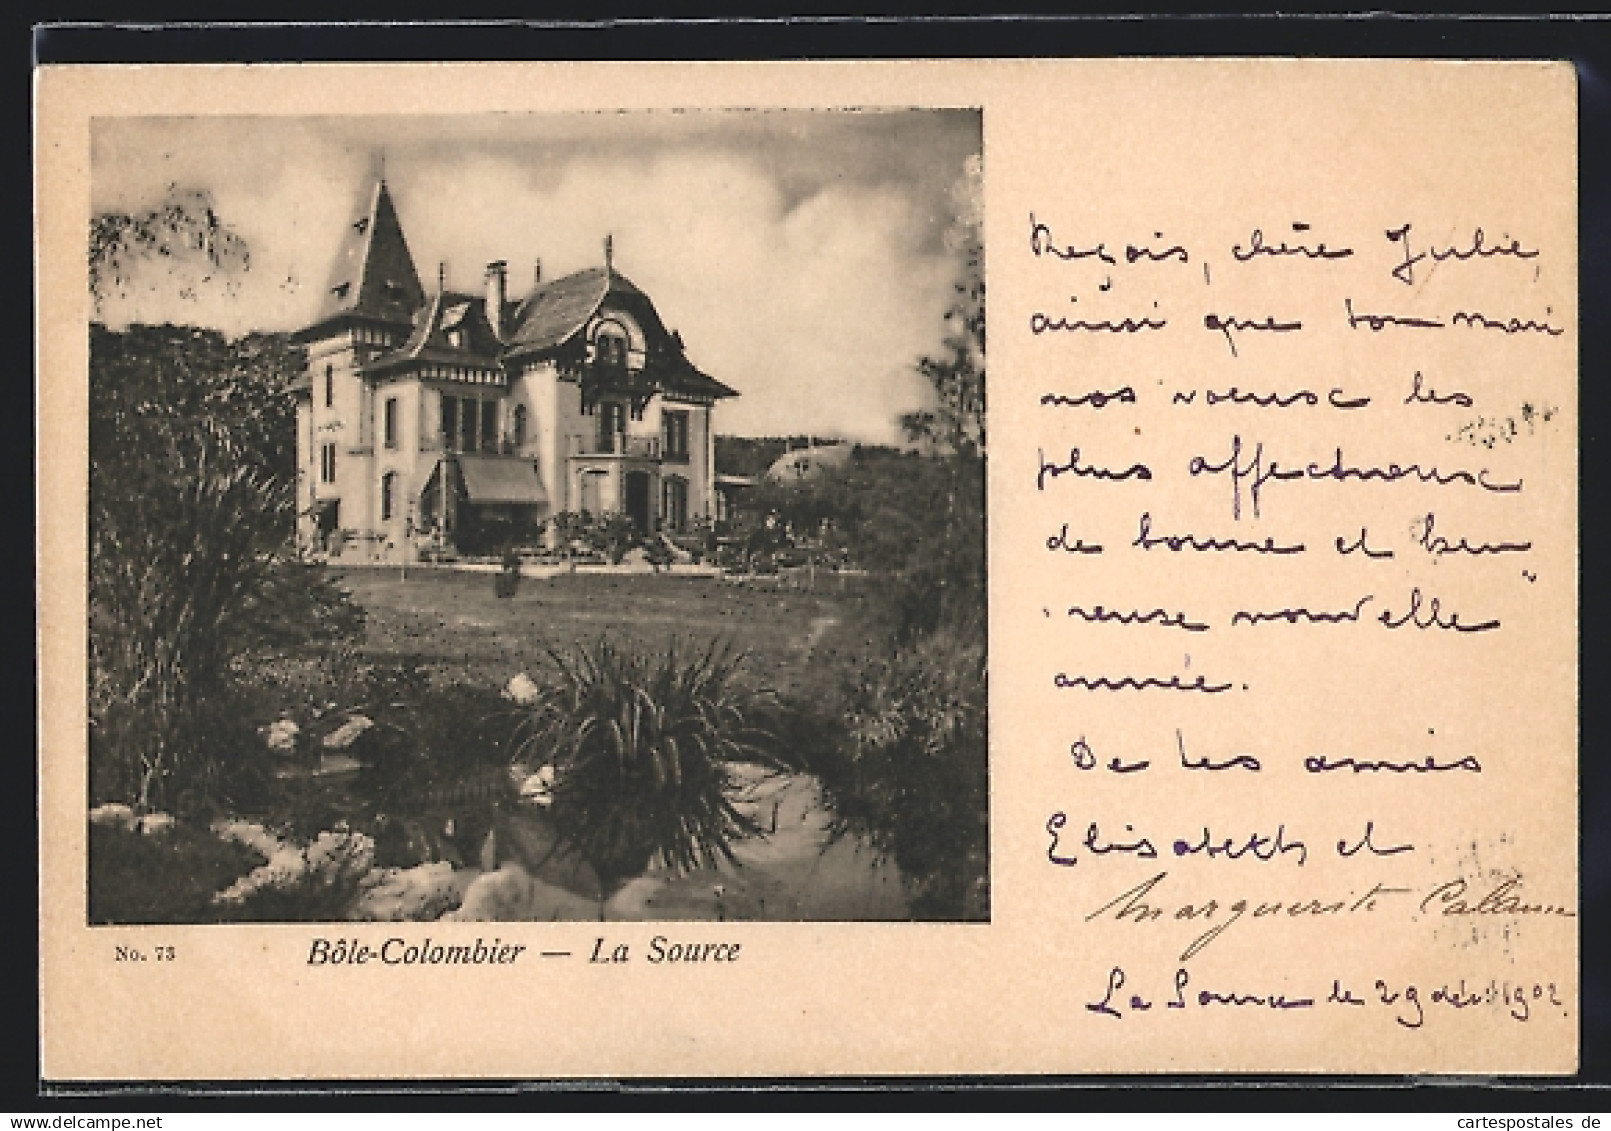 Reçois, chère Julie,
ainsi que ton mari
nos voeux les
plus affectueux
de bonne et heu"
reuse nouvelle
année.
De tes amies
Elisabeth et
Marguerite Calame
La Source le 29 déc. 1902.
No. 73 Bôle-Colombier — La Source
cartespostales de